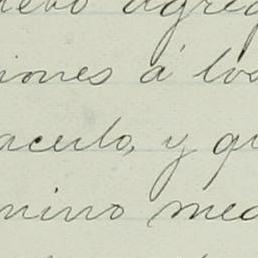 debo agreg
iones á los
acerlo, y qu
mino med